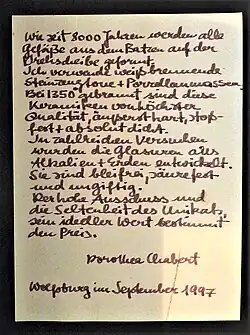 Wie seit 8000 Jahren werden alle
Gefäße aus dem Batzen auf der
Drehscheibe geformt.
Ich verwende weißbrennende
Steinzeugtone + Porzellanmassen.
Bei 1350° gebrannt sind diese
Keramiken von höchster
Qualität, äußerst hart, stoß-
fest + absolut dicht.
In zahlreichen Versuchen
wurden die Glasuren aus
Alkalien + Erden entwickelt.
Sie sind bleifrei, säurefest
und ungiftig.
Der hohe Ausschuss und
die Seltenheit des Unikats,
sein ideeller Wert bestimmt
den Preis.
Dorothea Chabert
Wolfsburg im September 1997